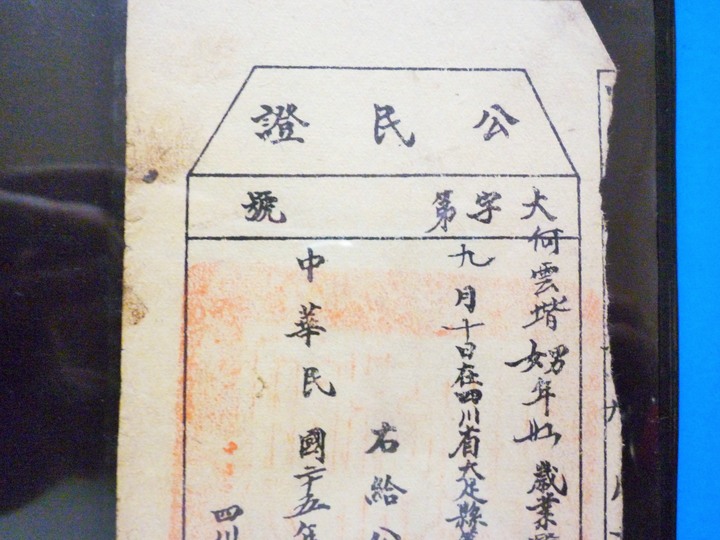 公民證
大字第號
何雲堦 男女年 歲業
九月十日在四川省大足縣
右給公
中華民國二十五年
四川